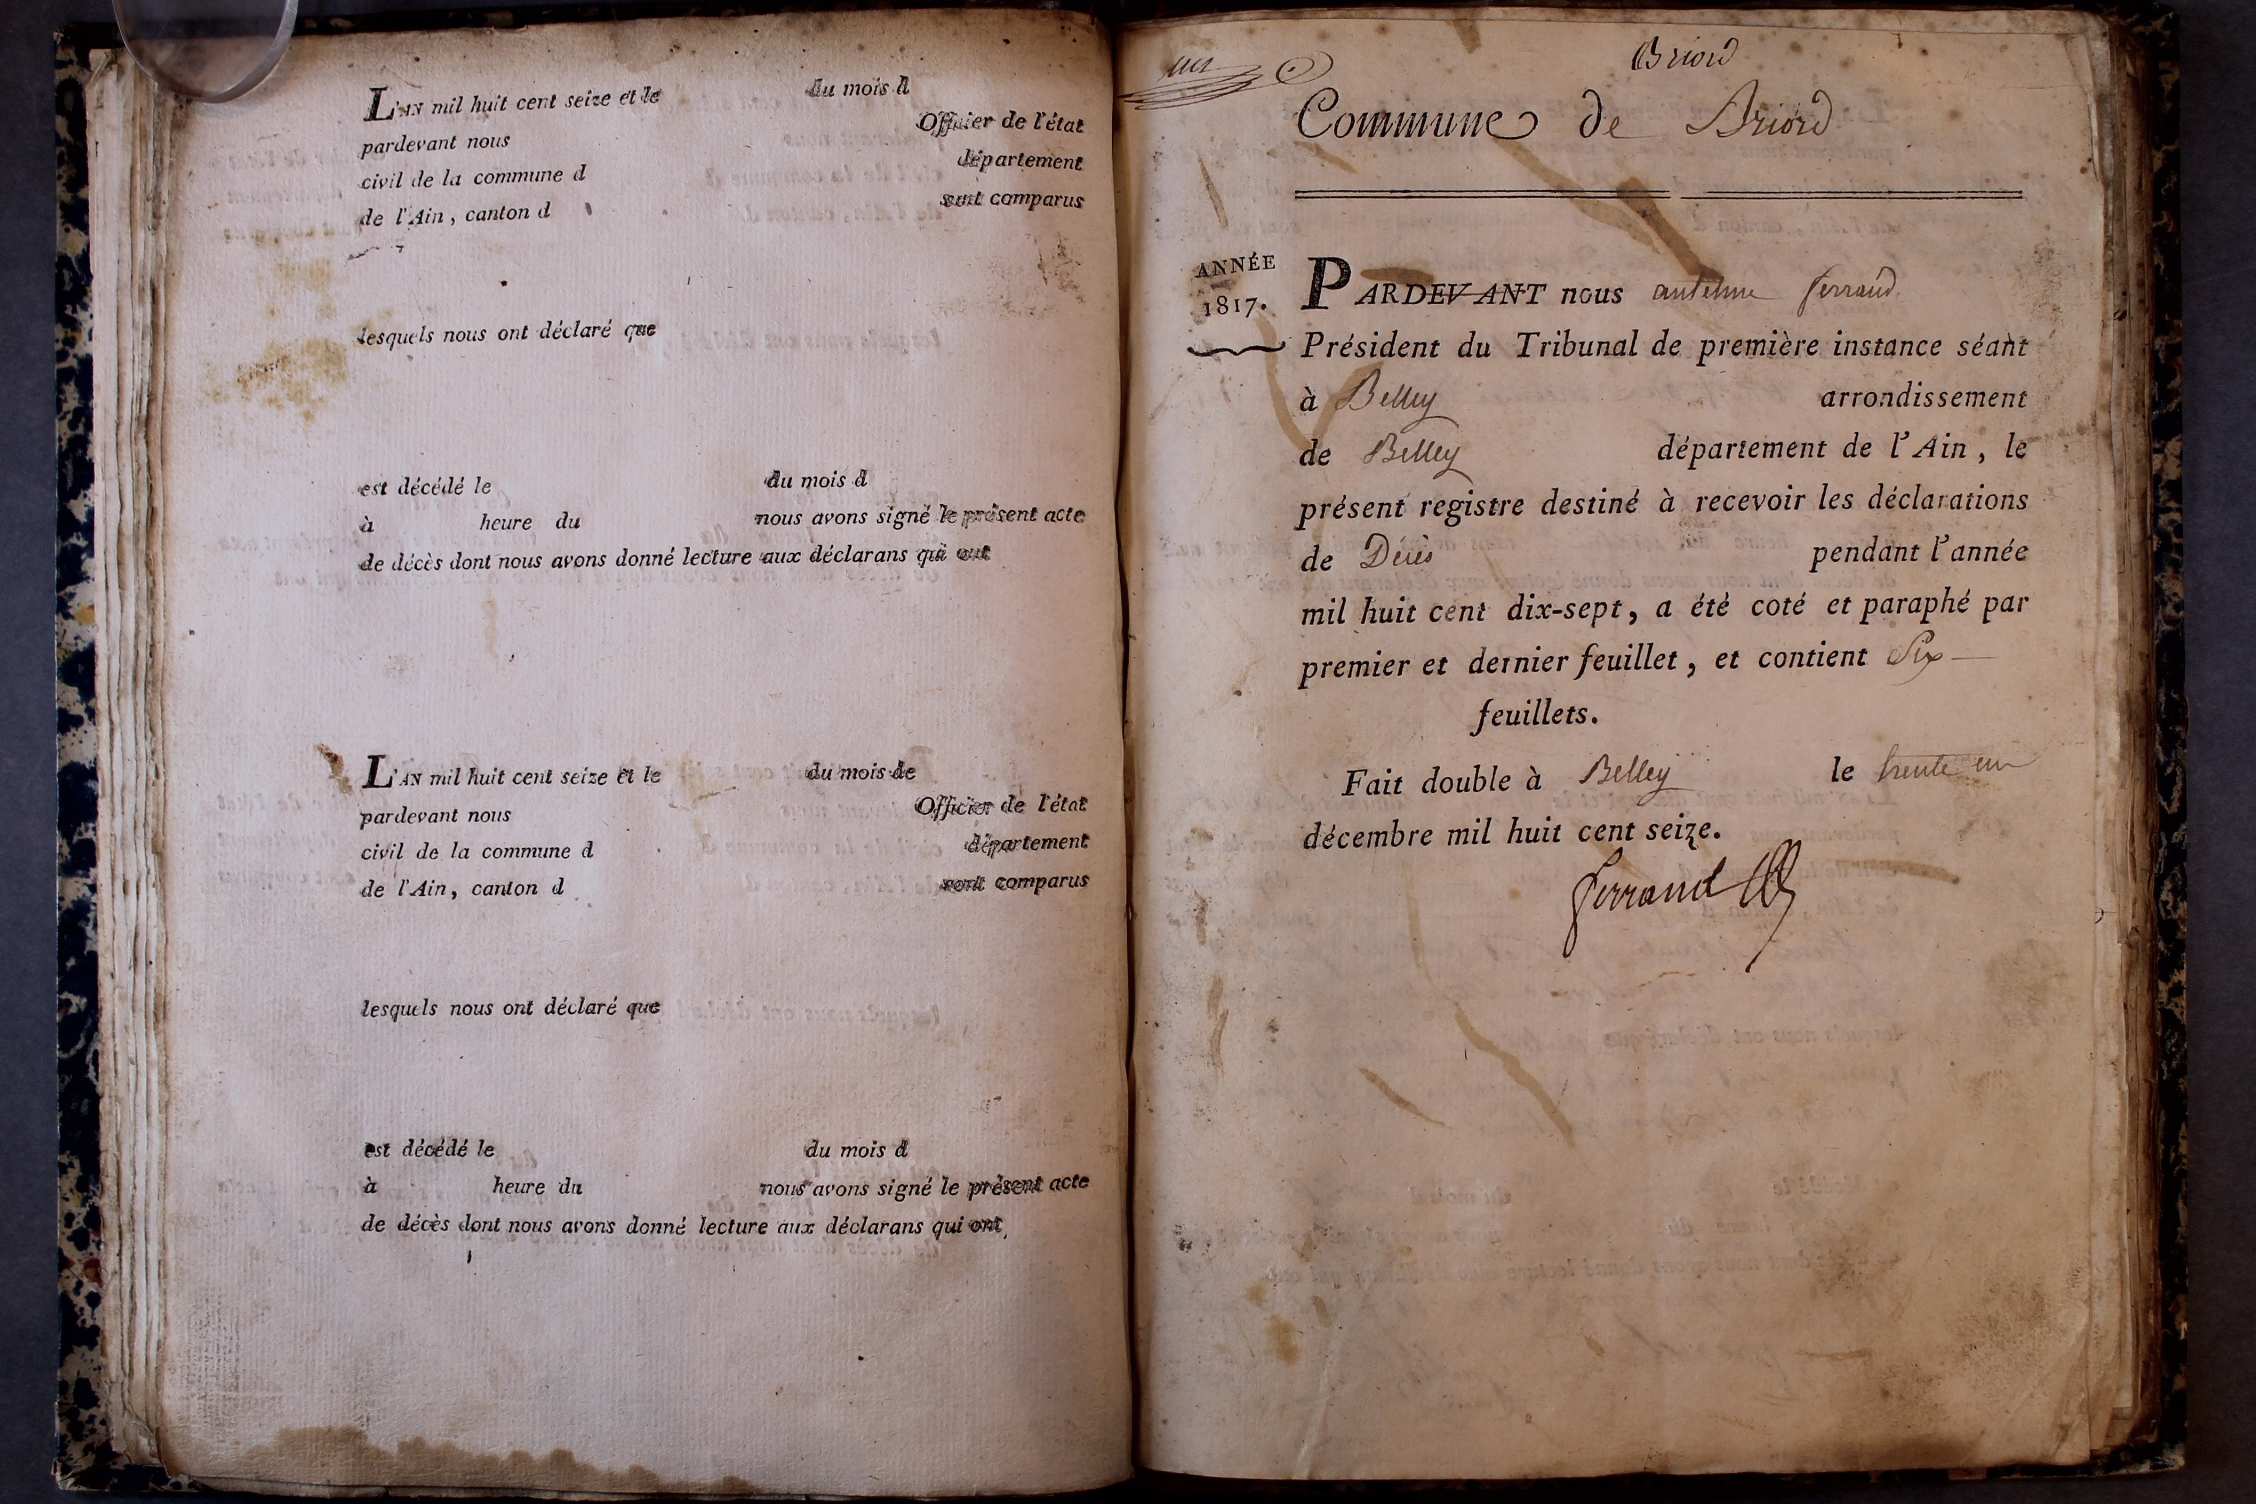 L'AN mil huit cent seize et le du mois d
pardevant nous Officier de l'état
civil de la commune d département
de l'Ain, canton d sont comparus
lesquels nous ont déclaré que
est décédé le du mois d
à heure du nous avons signé le présent acte
de décès dont nous avons donné lecture aux déclarans qui ont
L'AN mil huit cent seize et le du mois de
pardevant nous Officier de l'état
civil de la commune d département
de l'Ain, canton d sont comparus
lesquels nous ont déclaré que
est décédé le du mois d
à heure du nous avons signé le présent acte
de décès dont nous avons donné lecture aux déclarans qui ont
Briord
Commune de Briord
ANNÉE
1817.
PARDEVANT nous antelme ferrand
Président du Tribunal de première instance séant
à Belley arrondissement
de Belley département de l'Ain, le
présent registre destiné à recevoir les déclarations
de Décès pendant l'année
mil huit cent dix-sept, a été coté et paraphé par
premier et dernier feuillet, et contient Six
feuillets.
Fait double à Belley le trente un
décembre mil huit cent seize.
ferrand